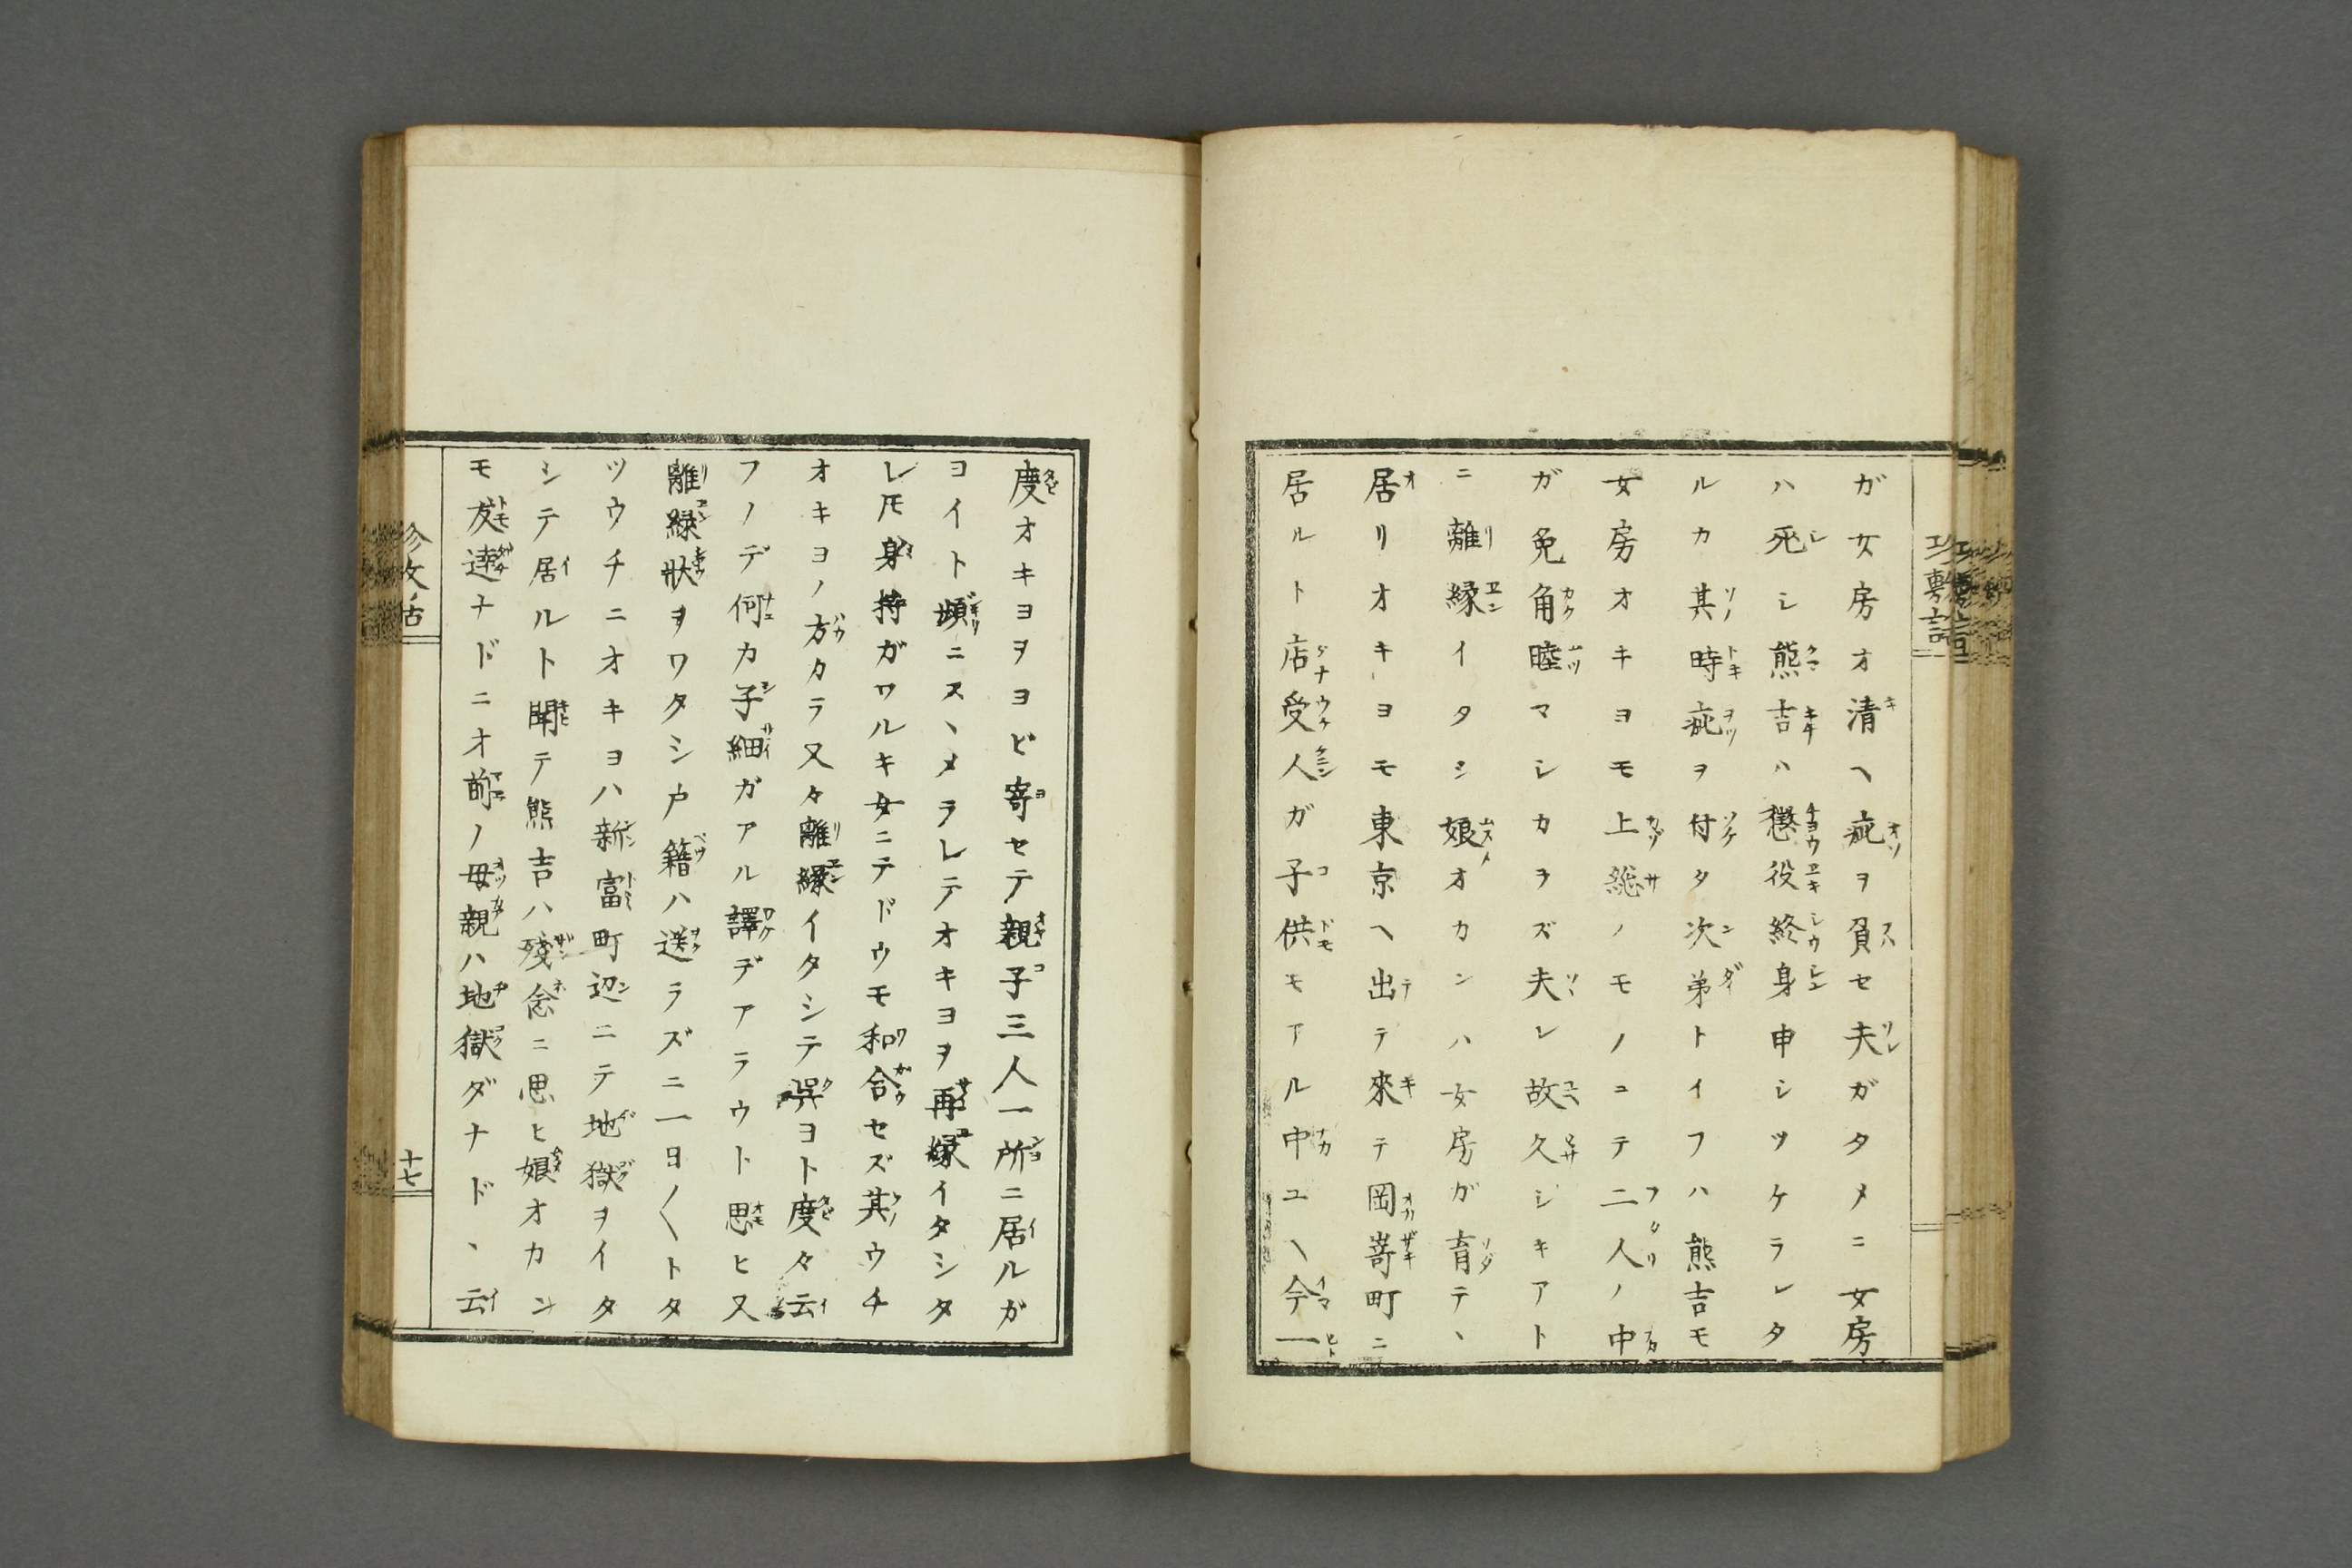 ガ女房オ清ヘ疵ヲ負セ夫ガタメニ女房
ハ死シ熊吉ハ懲役終身申シツケラレタ
ルカ其時疵ヲ付タ次弟トイフハ熊吉モ
女房オキヨモ上総ノモノユテ二人ノ中
ガ免角睦マシカヲズ夫レ故久シキアト
ニ離縁イタシ娘オカンハ女房ガ育テヽ
居リオキヨモ東京ヘ出テ來テ岡嵜町ニ
居ルト店受人ガ子供モアル中ユヘ今一
度オキヨヲヨビ寄セテ親子三人一所ニ居ルガ
ヨイト頻ニスヽメラレテオキヨヲ再縁イタシタ
レ𪜈身持ガワルキ女ニテドウモ和合セズ其ウチ
オキヨノ方カラ又々離縁イタシテ呉ヨト度々云
フノデ何カ子細ガアル譯ヂアラウト思ヒ又
離縁狀ヲワタシ戸籍ハ送ラズニ一日〱トタ
ツウチニオキヨハ新富町辺ニテ地獄ヲイタ
シテ居ルト聞テ熊吉ハ殘念ニ思ヒ娘オカン
モ友達ナドニオ前ノ母親ハ地獄ダナドヽ云
十七